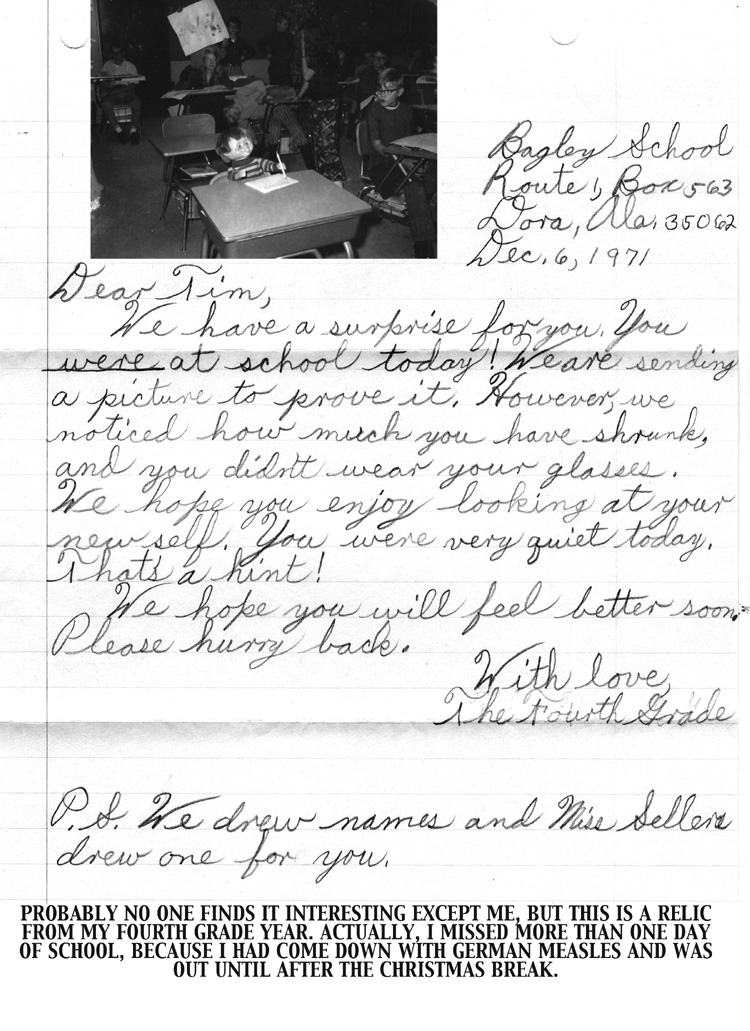 Bagley School
Route 1, Box 563
Dora, Ala. 35062
Dec. 6, 1971
Dear Tim,
We have a surprise for you. You
were at school today! We are sending
a picture to prove it. However, we
noticed how much you have shrunk,
and you didn't wear your glasses.
We hope you enjoy looking at your
new self. You were very quiet today.
That's a hint!
We hope you will feel better soon.
Please hurry back.
With love,
The Fourth Grade
P.S. We drew names and Miss Sellers
drew one for you.
PROBABLY NO ONE FINDS IT INTERESTING EXCEPT ME, BUT THIS IS A RELIC
FROM MY FOURTH GRADE YEAR. ACTUALLY, I MISSED MORE THAN ONE DAY
OF SCHOOL, BECAUSE I HAD COME DOWN WITH GERMAN MEASLES AND WAS
OUT UNTIL AFTER THE CHRISTMAS BREAK.